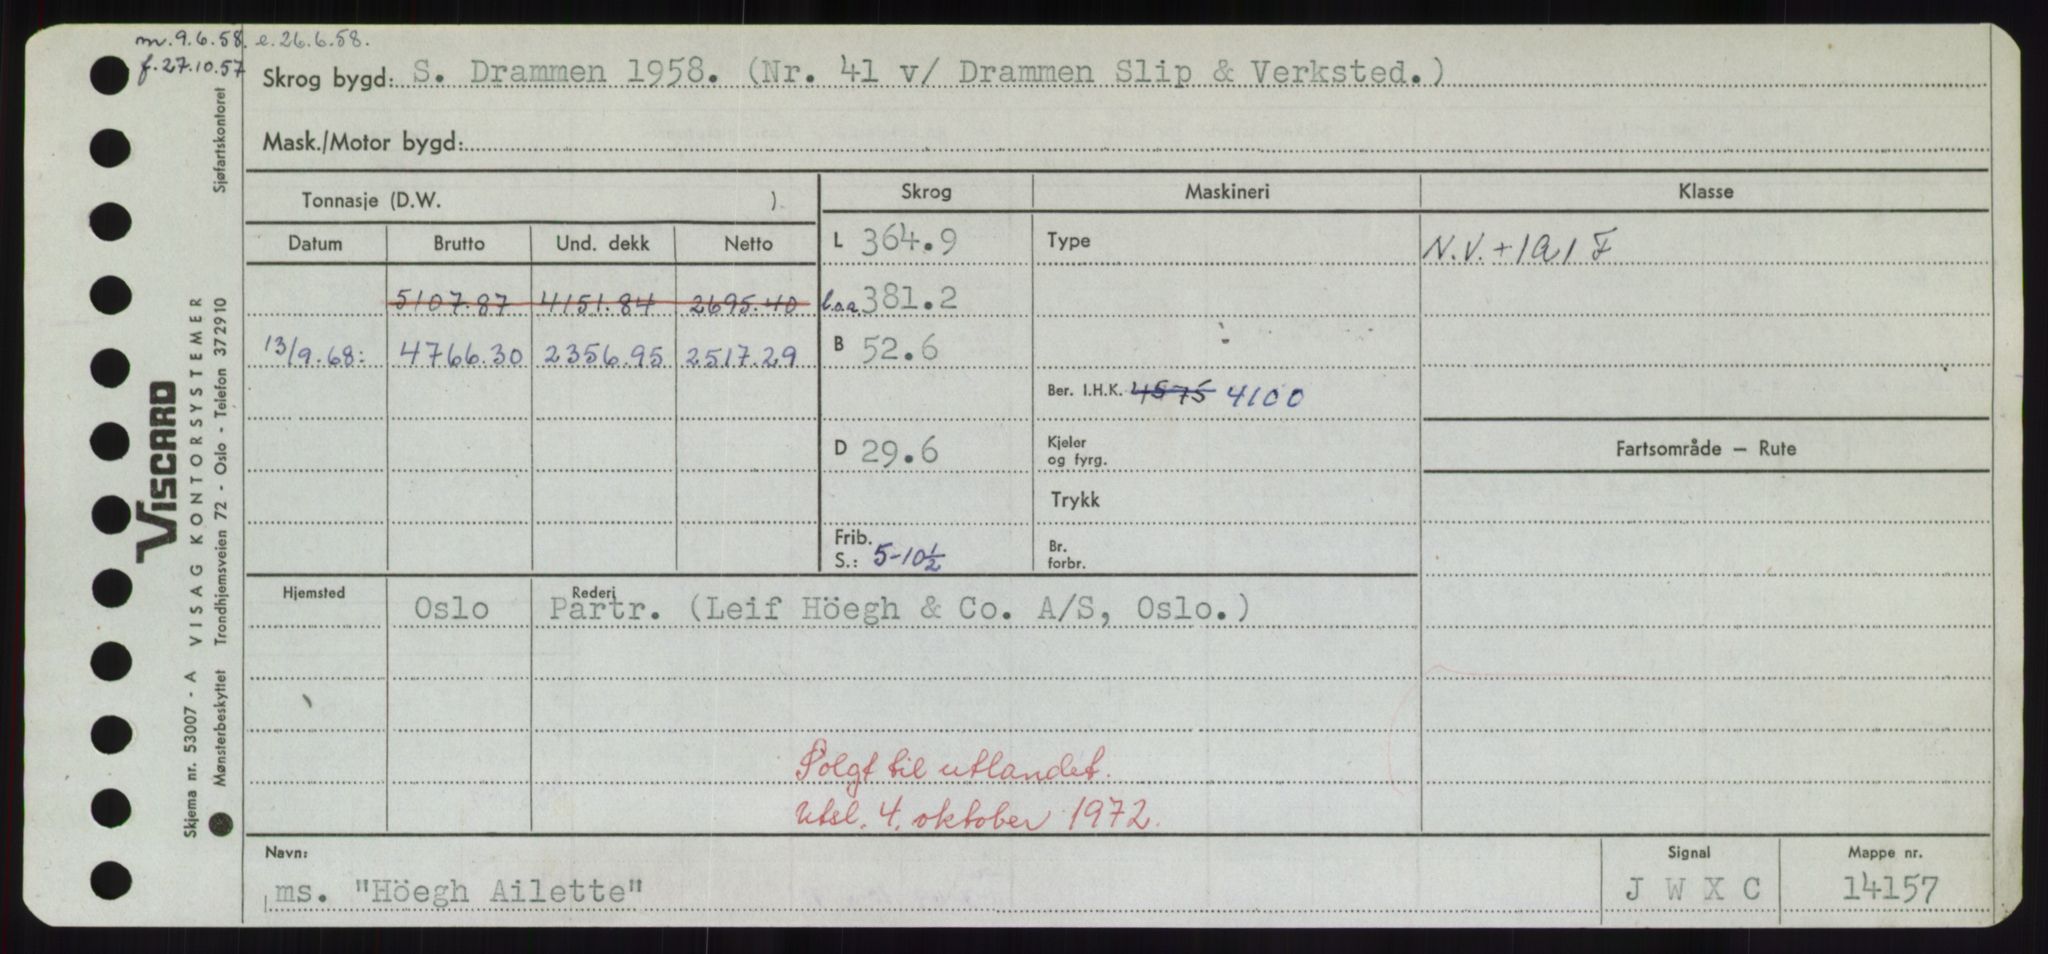 m. 9.6.58. e. 26.6.58.
f. 27.10.57
Skrog bygd: S. Drammen 1958. (Nr. 41 v/ Drammen Slip & Verksted.)
Mask./Motor bygd:
Tonnasje (D.W. ).
Skrog Maskineri Klasse
Datum Brutto Und. dekk Netto
L 364.9 Type N.V. + 1A1 F
5107.87 4151.84 2695.40 l.o.a. 381.2
13/9.68: 4766.30 2356.95 2517.29 B 52.6
Ber. I.H.K. 4575 4100
D 29.6 Kjeler og fyrg.
Fartsområde — Rute
Trykk
Frib. S.: 5-10½ Br. forbr.
Hjemsted Rederi
Oslo Partr. (Leif Höegh & Co. A/S, Oslo.)
Solgt til utlandet.
Utsl. 4. oktober 1972.
Navn: Signal Mappe nr.
ms. "Höegh Ailette" J W X C 14157
VISCARD
Skjema nr. 53007 - A VISAG KONTORSYSTEMER
Mønsterbeskyttet Trondhjemsveien 72 - Oslo - Telefon 372910 Sjøfartskontoret